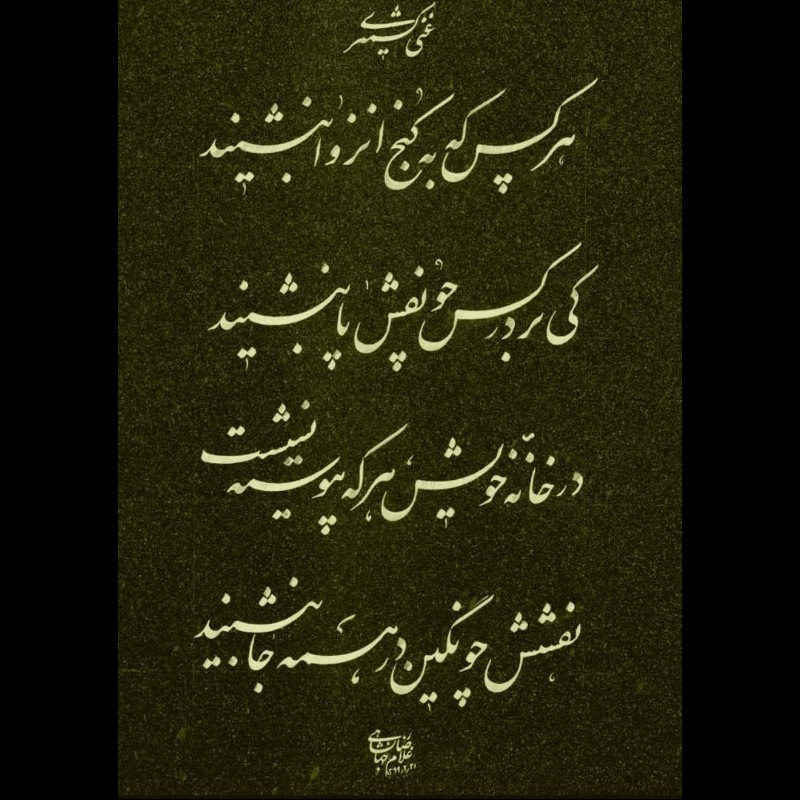 غنی کشمیری
هر کس که به کنج انزوا بنشیند
کی بر در کس چو نقش پا بنشیند
در خانه خویش هر که پیوسته نشست
نقشش چو نگین در همه جا بنشیند